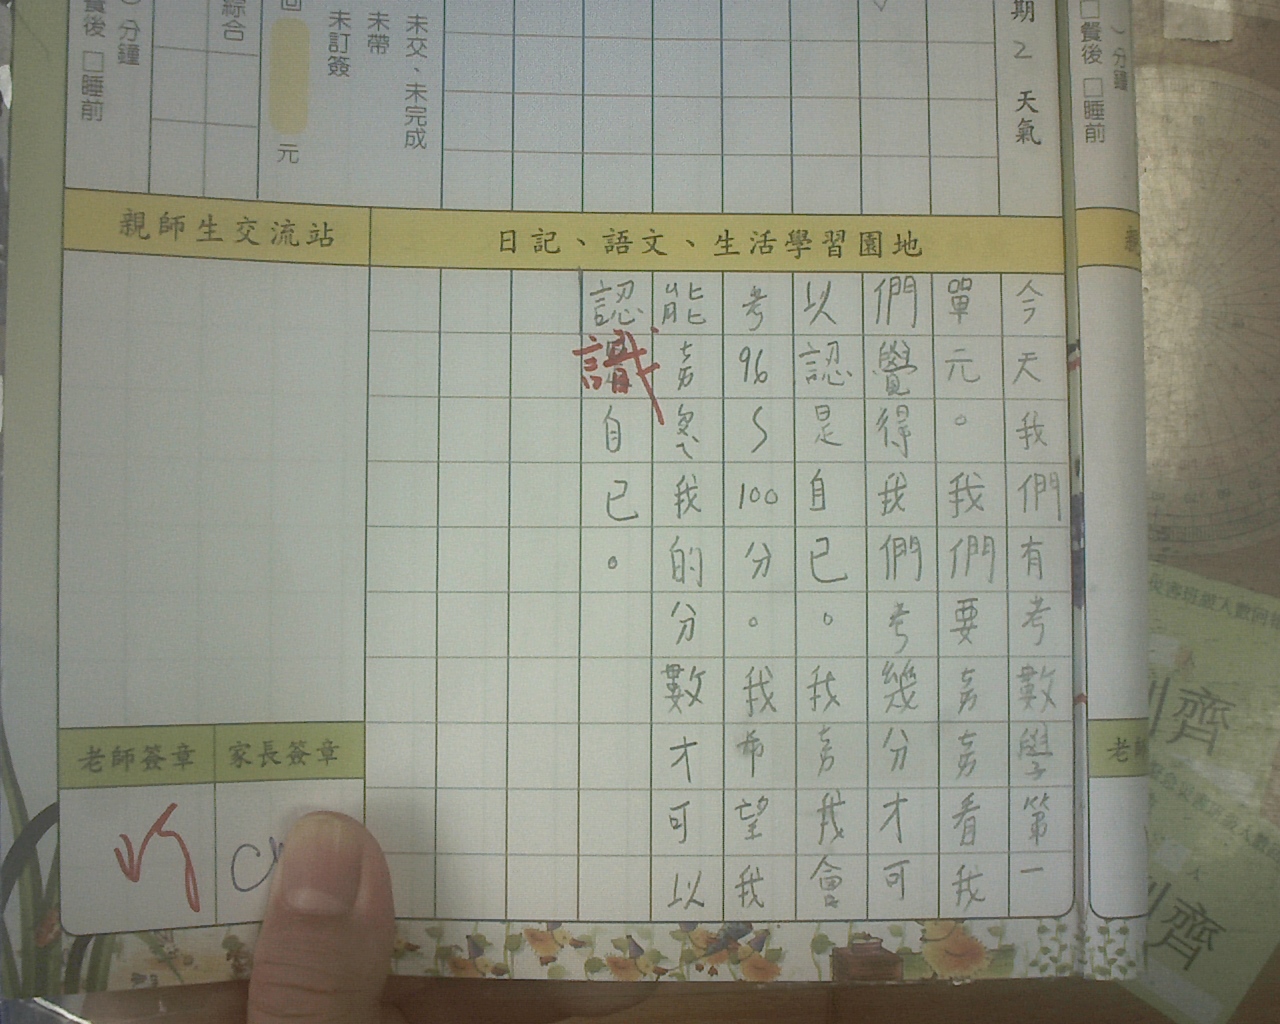 餐後 □睡前
）分鐘
綜合
回
元
未訂簽
未帶
未交、未完成
期 2 天氣
□餐後 □睡前
）分鐘
親師生交流站
日記、語文、生活學習園地
今天我們有考數學第一
單元。我們要看我
們覺得我們考幾分才可
以認是自已。我會
考96~100分。我希望我
能我的分數才可以
認識自已。
老師簽章
家長簽章
老師
齊
齊